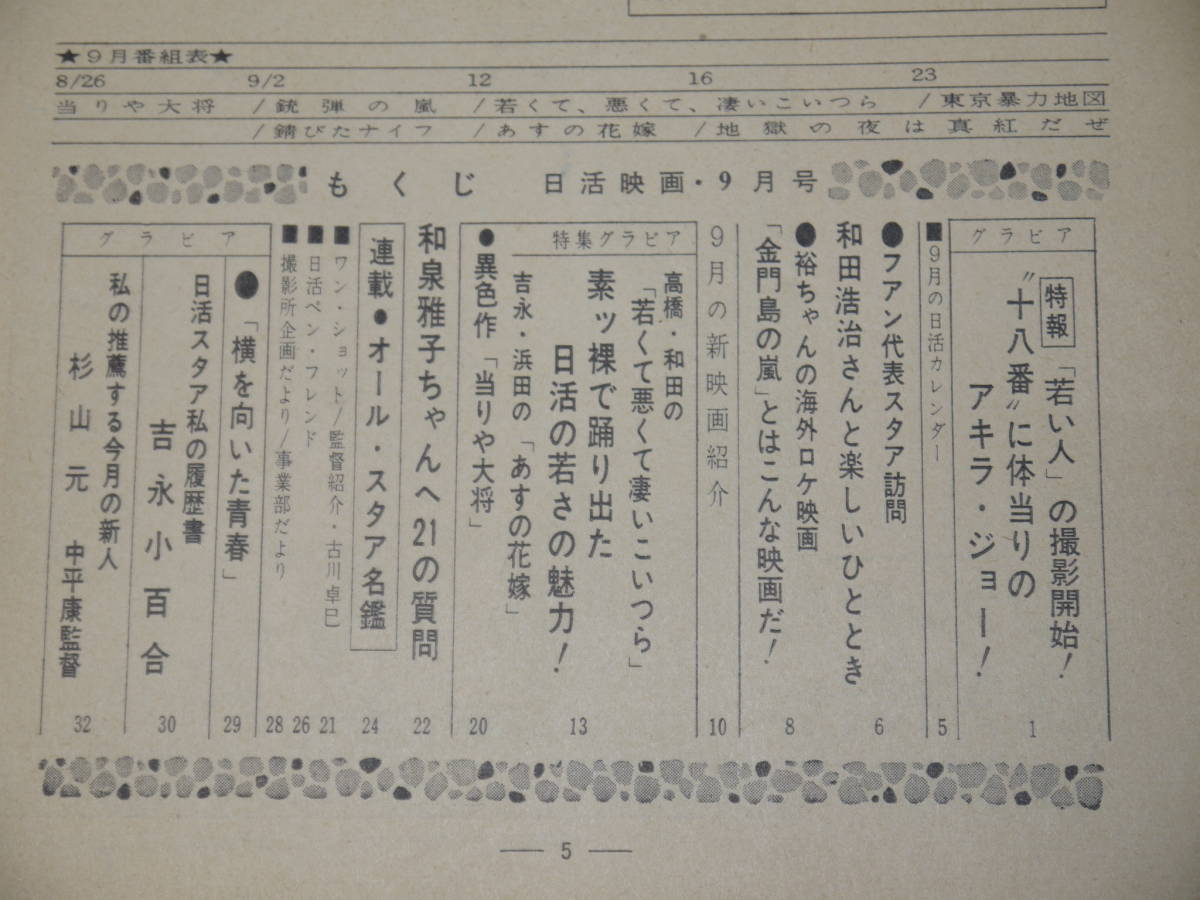 ★9月番組表★
8/26 9/2 12 16 23
当りや大将 /銃弾の嵐 /若くて、悪くて、凄いこいつら /東京暴力地図
/錆びたナイフ /あすの花嫁 /地獄の夜は真紅だぜ
もくじ 日活映画・9月号
グラビア
特報 「若い人」の撮影開始!
"十八番"に体当りの
アキラ・ジョー!
1
■9月の日活カレンダー
5
●フアン代表スタア訪問
和田浩治さんと楽しいひととき
6
●裕ちゃんの海外ロケ映画
「金門島の嵐」とはこんな映画だ!
8
9月の新映画紹介
10
特集グラビア
高橋・和田の
「若くて悪くて凄いこいつら」
素ッ裸で踊り出た
日活の若さの魅力!
13
吉永・浜田の「あすの花嫁」
●異色作「当りや大将」
20
和泉雅子ちゃんへ21の質問
22
連載●オール・スタア名鑑
24
■ワン・ショット/監督紹介・古川卓巳
21
■日活ペン・フレンド
26
■撮影所企画だより/事業部だより
28
グラビア
●「横を向いた青春」
29
日活スタア私の履歴書
吉永小百合
30
私の推薦する今月の新人
杉山元 中平康監督
32
— 5 —